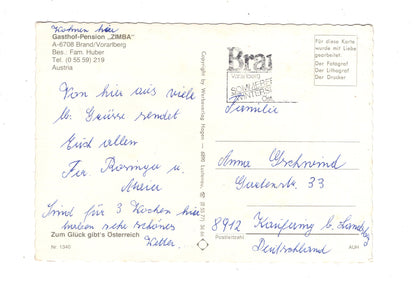 Wohnen hier
Gasthof-Pension „ZIMBA"
A-6708 Brand/Vorarlberg
Bes.: Fam. Huber
Tel. (0 55 59) 219
Austria
Von hier aus viele
l. Grüsse sendet
Euch allen
Fer. u.
Maria
Sind für 3 Wochen hier
haben sehr schönes
Wetter
Zum Glück gibt's Österreich
Nr. 1340
Brand
Vorarlberg
SOMMERFRI
WINTERS
Für diese Karte
wurde mit Liebe
gearbeitet
Der Fotograf
Der Lithograf
Der Drucker
Familie
Anna Gschwind
Gartenstr. 33
8912 Kaufering b. Landsberg
Deutschland
Postleitzahl
AUH